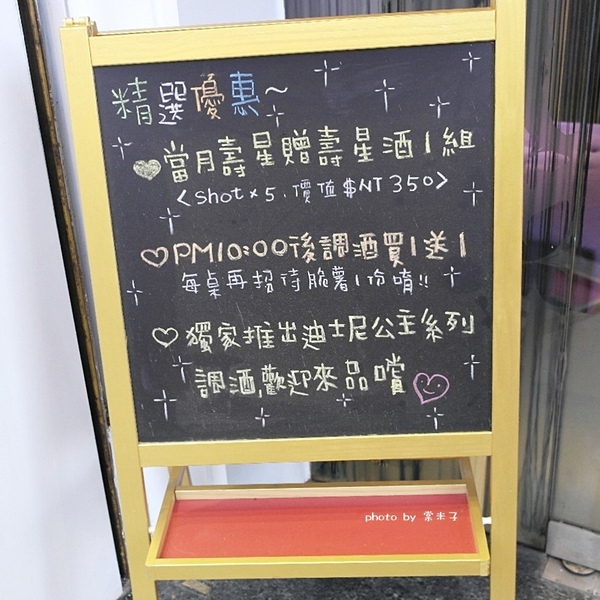 精選優惠~
當月壽星贈壽星酒1組
<shot×5.價值$NT 350>
PM10:00後調酒買1送1
每桌再招待脆薯1份唷!!
獨家推出迪士尼公主系列
調酒,歡迎來品嚐
photo by 棠米子